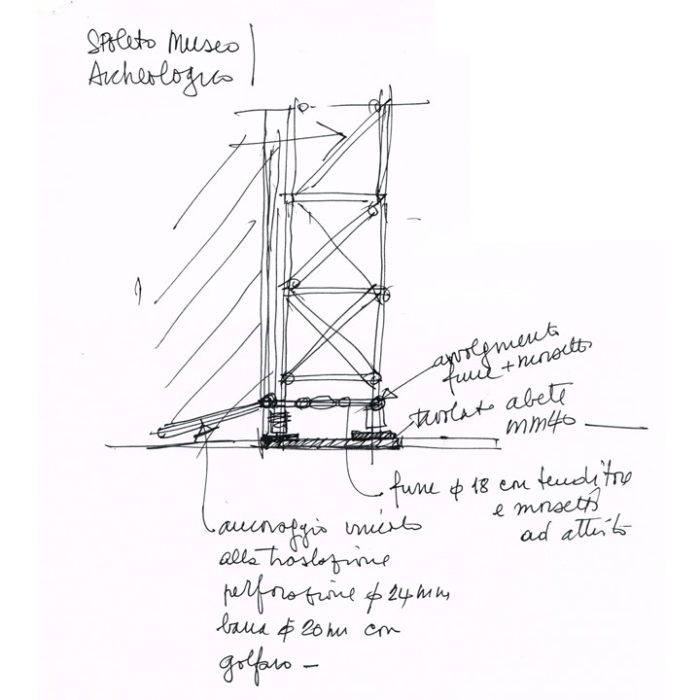 Spoleto Museo
Archeologico
avvolgimento
fune + morsetti
tavolato abete
mm40
fune ϕ 18 con tenditore
e morsetti
ad attrito
ancoraggio
alla traslazione
perforazione ϕ 24mm
barra ϕ 20mm con
golfaro –